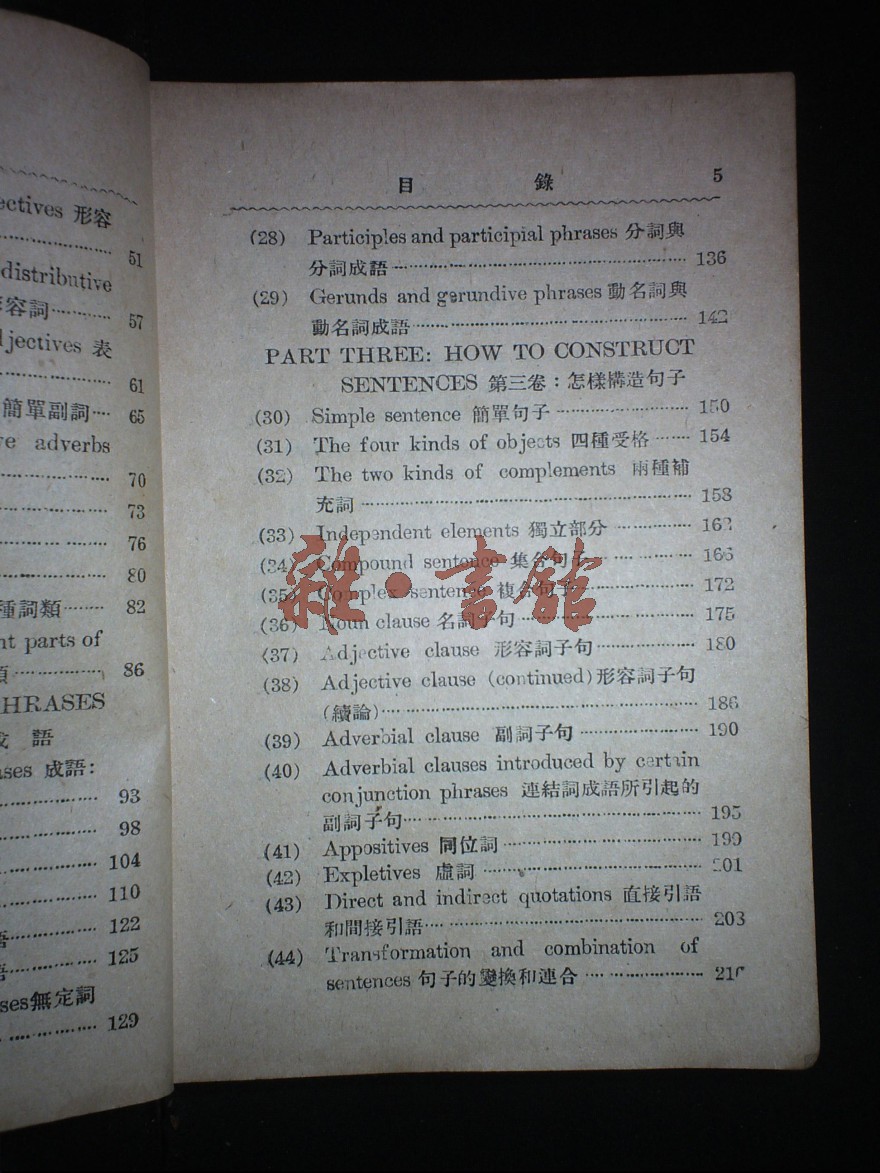 ectives 形容
51
distributive
容詞 57
jectives 表
61
簡單副詞 65
ve adverbs
70
73
76
80
種詞類 82
nt parts of
86
HRASES
語
ases 成語:
93
98
104
110
122
125
ses無定詞
129
目 錄 5
(28) Participles and participial phrases 分詞與
分詞成語 136
(29) Gerunds and gerundive phrases 動名詞與
動名詞成語 142
PART THREE: HOW TO CONSTRUCT
SENTENCES 第三卷:怎樣構造句子
(30) Simple sentence 簡單句子 150
(31) The four kinds of objects 四種受格 154
(32) The two kinds of complements 兩種補
充詞 158
(33) Independent elements 獨立部分 162
(34) Compound sentence 集合句子 166
(35) Complex sentence 複合句子 172
(36) Noun clause 名詞子句 175
(37) Adjective clause 形容詞子句 180
(38) Adjective clause (continued)形容詞子句
(續論) 186
(39) Adverbial clause 副詞子句 190
(40) Adverbial clauses introduced by certain
conjunction phrases 連結詞成語所引起的
副詞子句 195
(41) Appositives 同位詞 199
(42) Expletives 虛詞 201
(43) Direct and indirect quotations 直接引語
和間接引語 203
(44) Transformation and combination of
sentences 句子的變換和連合
雜·書館